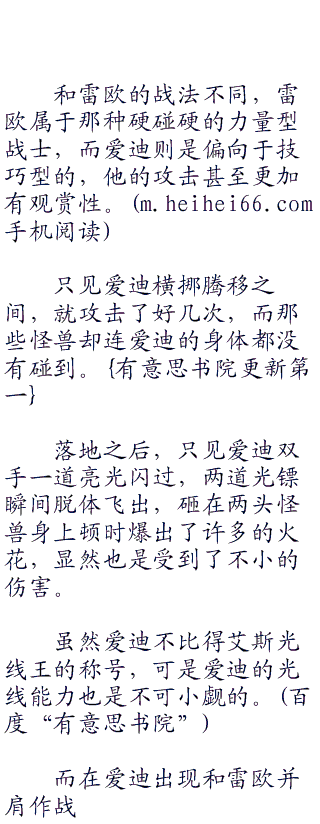 和雷欧的战法不同，雷
欧属于那种硬碰硬的力量型
战士，而爱迪则是偏向于技
巧型的，他的攻击甚至更加
有观赏性。(m.heihei66.com
手机阅读)
只见爱迪横挪腾移之
间，就攻击了好几次，而那
些怪兽却连爱迪的身体都没
有碰到。{有意思书院更新第
一}
落地之后，只见爱迪双
手一道亮光闪过，两道光镖
瞬间脱体飞出，砸在两头怪
兽身上顿时爆出了许多的火
花，显然也是受到了不小的
伤害。
虽然爱迪不比得艾斯光
线王的称号，可是爱迪的光
线能力也是不可小觑的。(百
度“有意思书院”)
而在爱迪出现和雷欧并
肩作战